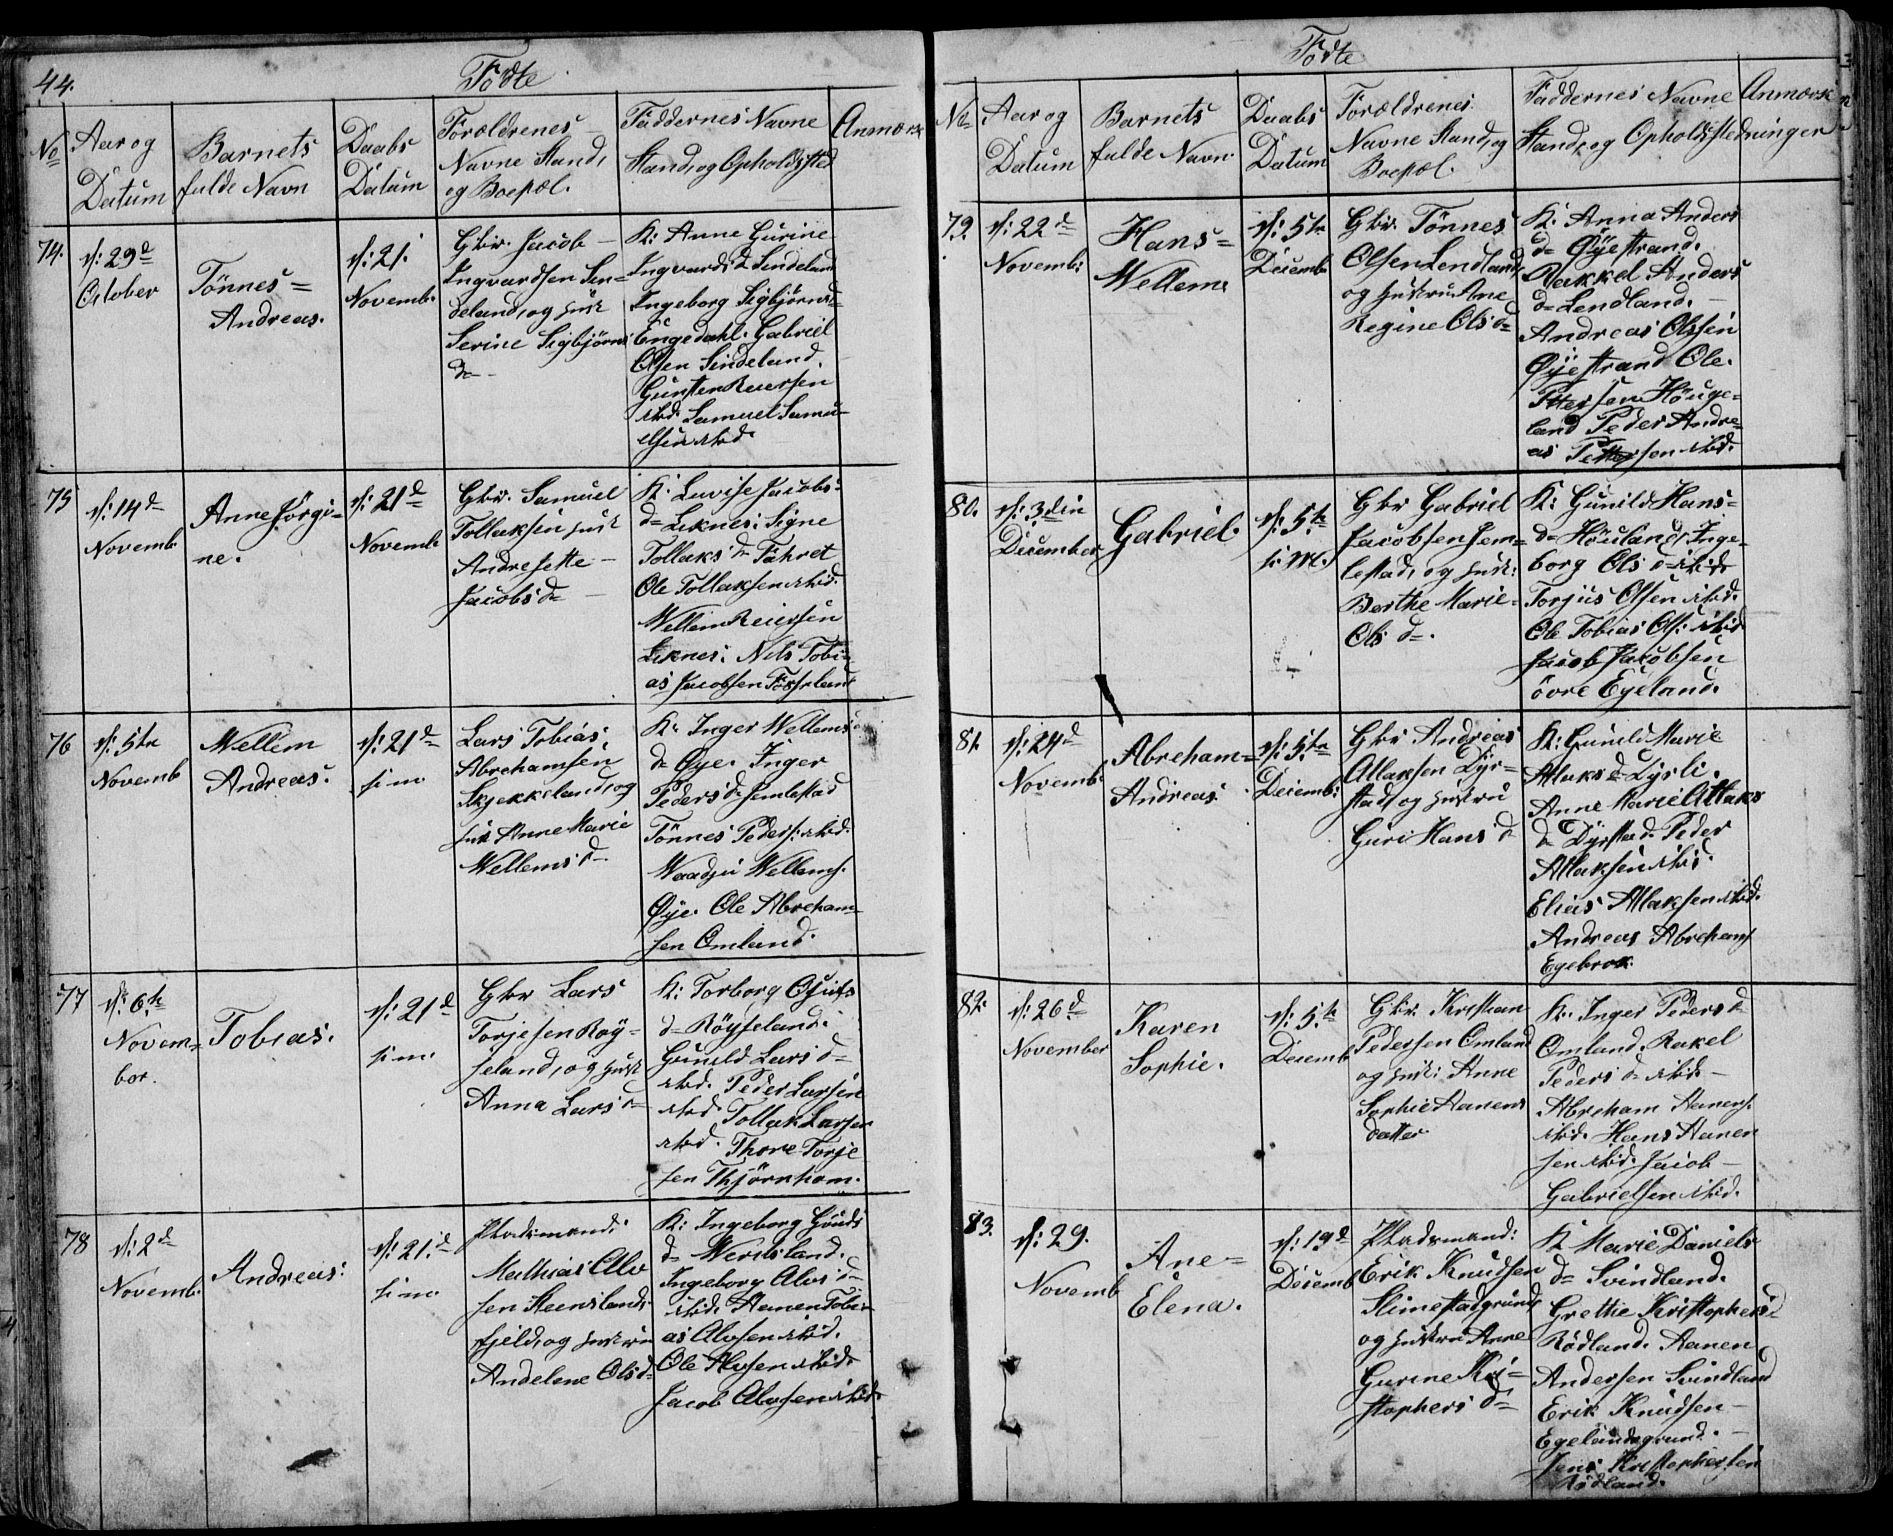 44.
Fødte
No
Aar og
Datum
Barnets
fulde Navn
Daabs
Datum
Forældrenes
Navne Stand,
og Boepæl.
Faddernes Navne
Stand, og Opholdssted
Anmærk
74.
d: 29d
October
Tönnes=
Andreas.
d: 21.
Novemb:
Gbr. Jacob
Ingvardsen Sin-
deland, og hust
Serine Sigbjörns
d=
K: Anne Gurine
Ingvards d Sindeland
Ingeborg Sigbjörnsd=
Engedahl. Gabriel
Olsen Sindeland
Gunsten Reiersen
sted. Samuel Samu-
elsen sted.
75
d: 14d
Novemb
Anne Jörgi-
ne.
d: 21d
Novemb
Gbr. Samuel
Tollaksen hust
Andresette
Jacobs d=
K: Lovise Jacobs-
d= Liknes. Signe
Tollaks d=
Ole Tollaksen sted.
Wellem Reiersen
Liknes. Nils Tobi-
as Jacobsen
76
d: 5te
Novemb
Wellem
Andreas.
d: 21d
s: m.
Lars Tobias
Abrehamsen
Skjekkeland, og
hust Anne Marie
Wellems d=
K: Inger Wellems
d= Øye. Inger
Peders d= Jemlestad
Tönnes Peders: sted.
Wellems.
Øye. Ole Abreham-
sen Omland.
77
d: 6te
Novem-
ber.
Tobias.
d: 21d
s: m.
Gbr Lars
Torjesen Röy-
seland, og hust
Anna Lars d=
K: Torborg
d= Röyseland.
Gunild Lars d=
sted. Peder Larsen
sted. Tollak Larsen
sted. Thore Torje
sen Thjörnhom.
78
d: 2d
Novemb.
Andreas.
d: 21d
s: m.
Pladsmand:
Mathias Alv
sen Steensland-
fjeld, og hustru
Andelene Ols d=
K: Ingeborg
d= Werdsland.
Ingeborg Alvs d=
sted. Aanen Tobi-
as Alvsen sted.
Ole Alvsen sted.
Jacob Alvsen sted.
Fødte
No
Aar og
Datum
Barnets
fulde Navn
Daabs
Datum
Forældrenes
Navne Stand, og
Boepæl.
Faddernes Navne
Stand, og Opholdsstedninger
Anmærk
79.
d: 22d
Novemb:
Hans=
Wellem.
d: 5te
Decemb
Gbr. Tönnes
Olsen Lendland
og hustru Ane
Regine Ols d=
K: Anna Anders
d= Øyestrand.
Rakkel Anders
d= Lendland.
Andreas Olssen
Øyestrand Ole
Pettersen Höuge-
land Peder Andre-
as Pettersen sted.
80.
d: 3die
December
Gabriel
d: 5te
s: M.
Gbr Gabriel
Jacobsen Jem-
lestad, og hust:
Berthe Marie
Ols d=.
K: Gunild Hans-
d= Höiland, Inge-
borg Ols d= sted
Torjus Olsen sted.
Ole Tobias Ols: sted
Jacob Jacobsen
övre Egeland.
81.
d: 24d
Novemb:
Abreham=
Andreas.
d: 5te
Decemb:
Gbr Andreas
Atlaksen Dyr-
stad, og hustru
Guri Hans d=
K: Gunild Marie
Atlaks d=
Anne Marie Attlaks
d= Dyrstad. Peder
Atlaksen sted.
Elias Atlaksen sted.
Andreas Abrehams
Egebrok.
82.
d: 26d
November
Karen
Sophie.
d: 5te
Decemb
Gbr. Kristian
Pedersen Omland
og hust: Anne
Sophie Aanens
datter
K: Inger Peders d
Omland. Rakel
Peders d= sted.
Abreham Aanens.
sted. Hans Aanen
sen sted. Jacob
Gabrielsen sted.
83.
d: 29.
Novemb
Ane=
Elena.
d: 19d
Decemb
Pladsmand:
Erik Knudsen
Slimestadgrund,
og hustru Anne
Gurine Kri-
stophers d=
K Marie Daniels
d= Svindland.
Grethe Kristophers d=
Rödland. Aanen
Andersen Svindland
Erik Knudsen
Egelandsgrund.
Jens Kristophersen
Rödland.